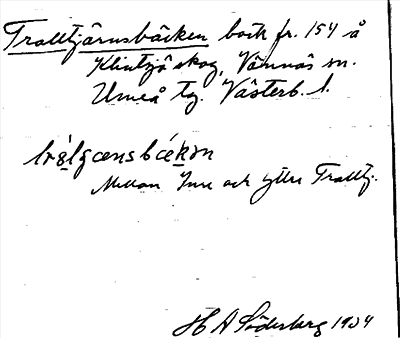 Tralltjärnsbäcken bäck fr. 154 å
Klintsjö skog, Vännäs sn.
Umeå tg. Västerb. l.
Mellan Inre och Yttre Tralltj.
H A Söderberg 1934